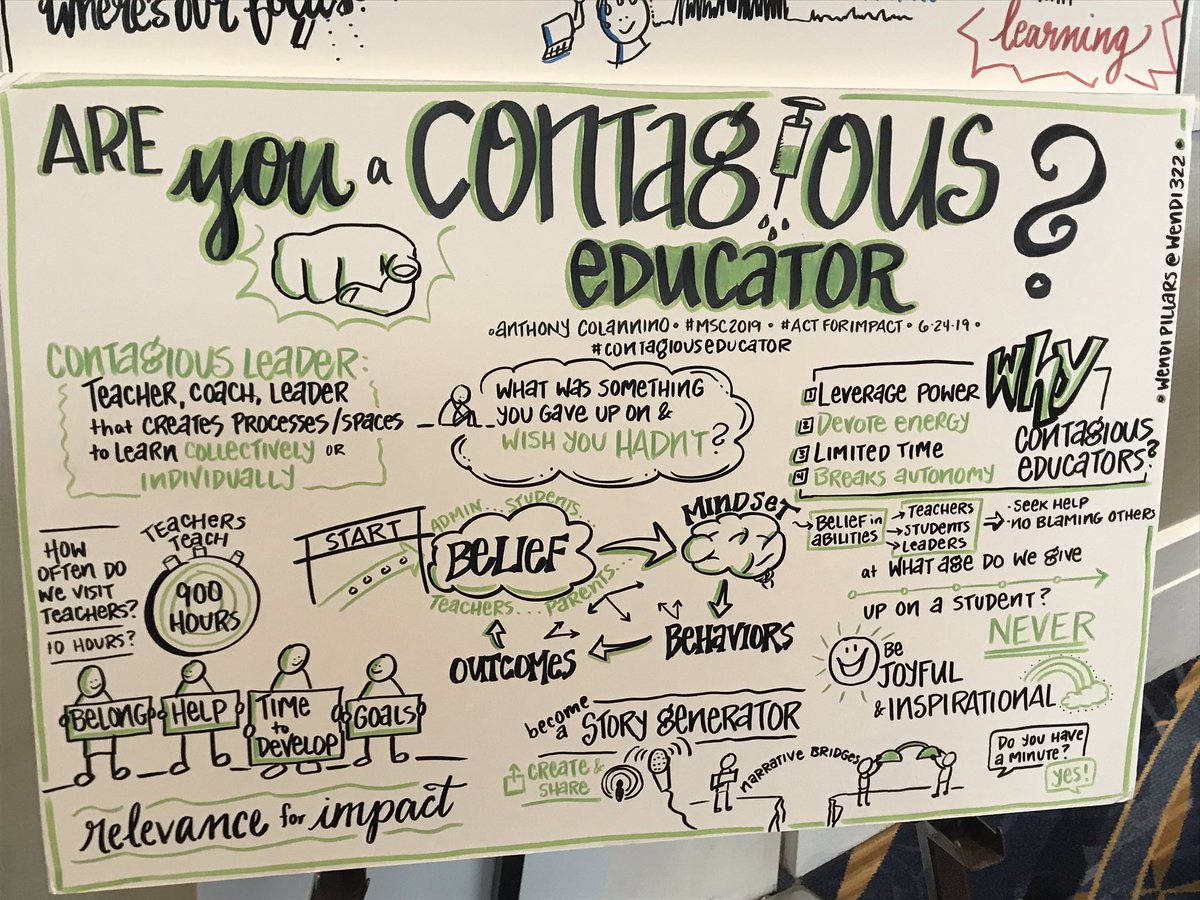 WHERE'S OUR FOCUS
learning
ARE you a CONTAGIOUS ?
EDUCATOR
• ANTHONY COLANNINO • #MSC2019 • #ACTFORIMPACT • 6-24-19 •
#CONTAGIOUSEDUCATOR
• WENDI PILLARS @WENDI322 •
CONTAGIOUS LEADER:
TEACHER, COACH, LEADER
that CREATES PROCESSES/SPACES
to LEARN COLLECTIVELY OR
INDIVIDUALLY
WHAT WAS SOMETHING
YOU GAVE UP ON &
WISH YOU HADN'T?
WHY
CONTAGIOUS
EDUCATORS?
1 LEVERAGE POWER
2 DEVOTE ENERGY
3 LIMITED TIME
4 BREAKS AUTONOMY
HOW
OFTEN DO
WE VISIT
TEACHERS?
10 HOURS?
TEACHERS
TEACH
900
HOURS
START
ADMIN... STUDENTS...
BELIEF
TEACHERS... PARENTS...
MINDSET
BEHAVIORS
OUTCOMES
BELIEF in
ABILITIES
TEACHERS
STUDENTS
LEADERS
- SEEK HELP
- NO BLAMING OTHERS
at WHAT AGE DO WE GIVE
UP ON A STUDENT?
NEVER
BE
JOYFUL
& INSPIRATIONAL
BELONG
HELP
TIME
to
DEVELOP
GOALS
relevance for impact
become
a STORY generator
CREATE &
SHARE
NARRATIVE BRIDGES
DO YOU HAVE
A MINUTE?
yes!